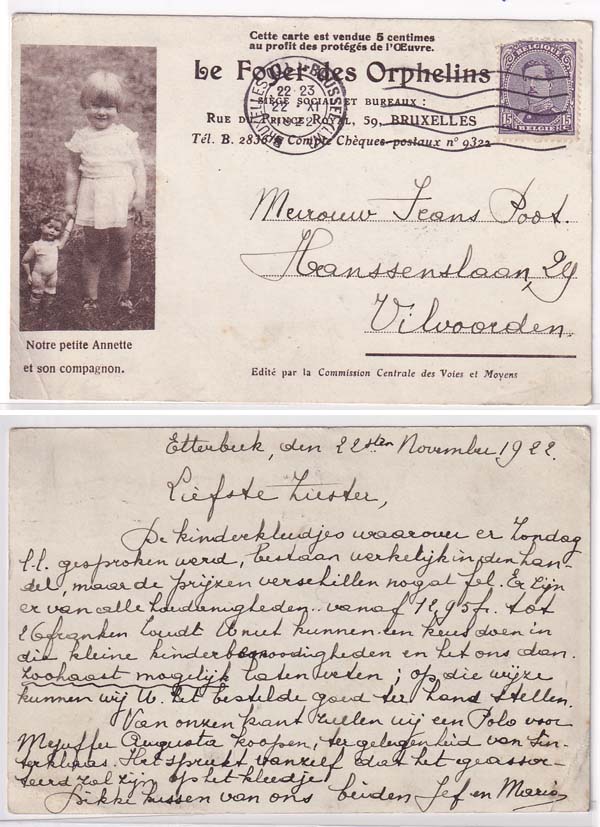 Cette carte est vendue 5 centimes
au profit des protégés de l'Œuvre.
Le Foyer des Orphelins
SIÈGE SOCIAL ET BUREAUX :
RUE DU PRINCE ROYAL, 59, BRUXELLES
Tél. B. 2836 Compte Chèques-postaux n° 9322
22 23
22 XI
1922
BRUXELLES BRUSSEL
BELGIQUE
15 15
BELGIË
Mevrouw Frans Poot.
Hanssenslaan, 29
Vilvoorden.
Notre petite Annette
et son compagnon.
Edité par la Commission Centrale des Voies et Moyens
Etterbeek, den 22sten November 1922.
Liefste Zuster,
De kinderkleedjes waarover er Zondag
l.l. gesproken werd, bestaan werkelijk in den han-
del, maar de prijzen verschillen nogat fel. Er zijn
er van alle hoedanigheden.. vanaf 12,95 fr. tot
26 franken. Zoudt U niet kunnen een keus doen in
die kleine kinderbenoodigheden en het ons dan
zoohaast mogelijk laten weten ; op die wijze
kunnen wij U. het bestelde goed ter hand stellen.
Van onzen kant zullen wij een Polo voor
Mejuffer Augusta koopen, ter gelegenheid van Sin-
terklaas. Het spreekt vanzelf dat het geassor-
teerd zal zijn op het kleedje
Dikke kussen van ons beiden Jef en Maria